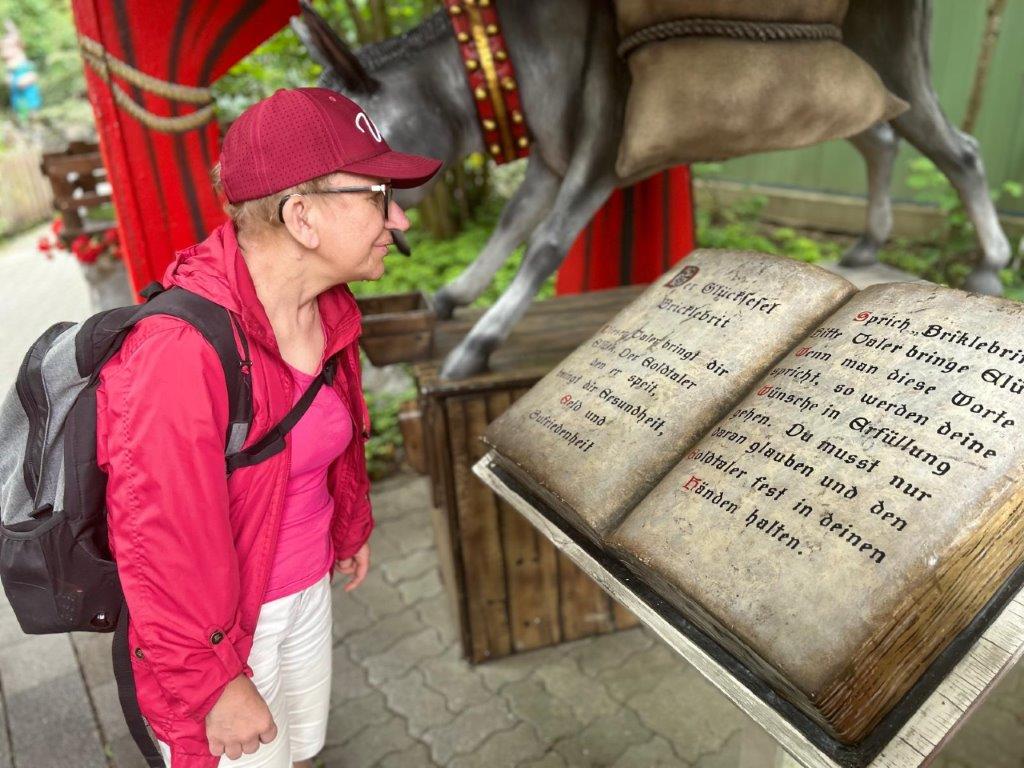 Der Glücksesel
Bricklebrit
Taler bringt dir
Glück. Der Goldtaler
den er speit,
bringt dir Gesundheit,
Geld und
Zufriedenheit
Sprich „Briklebrit
Bitte Taler bringe Glü
Wenn man diese Worte
spricht, so werden deine
Wünsche in Erfüllung
gehen. Du musst nur
daran glauben und den
Goldtaler fest in deinen
Händen halten.